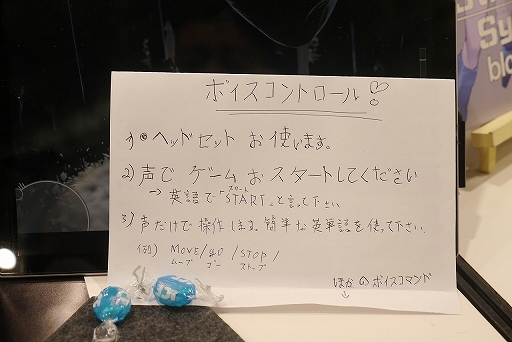 ボイスコントロール!
1) ヘッドセット お使います。
2) 声で ゲームおスタートしてください
スタート
→ 英語で「START」と言って下さい
3) 声だけで操作します。簡単な英単語を使って下さい。
(例) MOVE/GO/STOP/
ムーブ ゴー ストップ
ほかのボイスコマンド
↓
Sy
blo